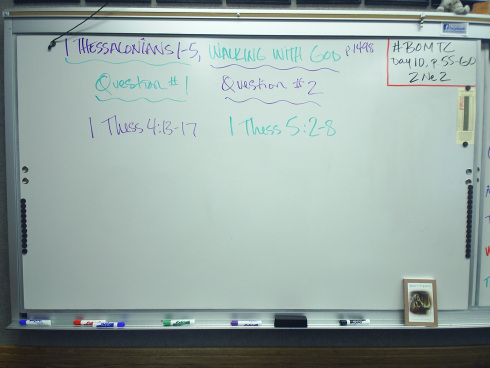 1 THESSALONIANS 1-5, WALKING WITH GOD p 1498
Question #1
Question #2
1 Thess 4:13-17
1 Thess 5:2-8
#BOMTC
Day 10, p 55-60
2 Ne 2
facebook